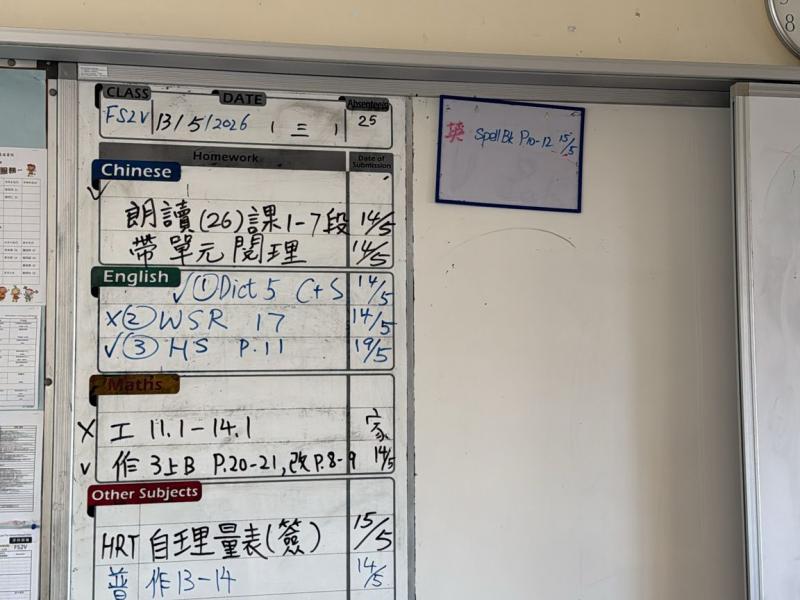 CLASS DATE Absentees
FS2V 13/5/2026 ( 三 ) 25
Homework Date of Submission
Chinese
朗讀(26)課1-7段 14/5
帶單元閱理 14/5
English
✓①Dict 5 C+S 14/5
×②WSR 17 14/5
✓③HS P.11 19/5
Maths
× 工 11.1-14.1 家
✓ 作 3上B P.20-21,改P.8-9 14/5
Other Subjects
HRT 自理量表(簽) 15/5
普 作13-14 14/5
英 Spell Bk P10-12 15/5
FS2V
8